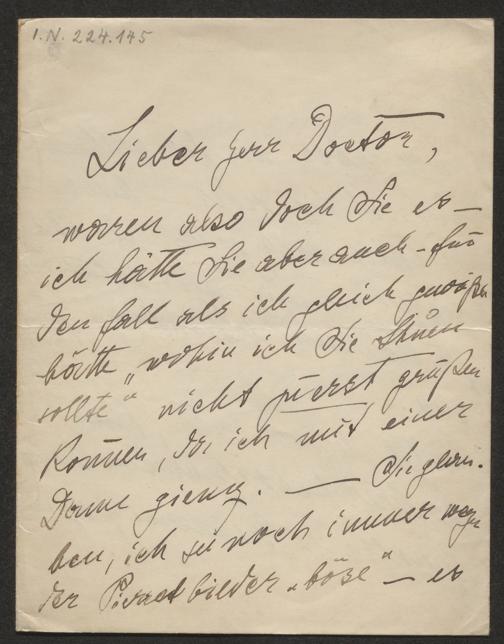 I.N. 224.145
Lieber Herr Doctor,
waren also doch Sie es –
ich hätte Sie aber auch – für
den Fall als ich gleich gewußt
hätte „wohin ich Sie thuen
sollte“ nicht zuerst grüßen
können, da ich mit einer
Dame gieng. — Sie glau-
ben, ich sei noch immer wegen
der Pierrotbilder „böse“ – es